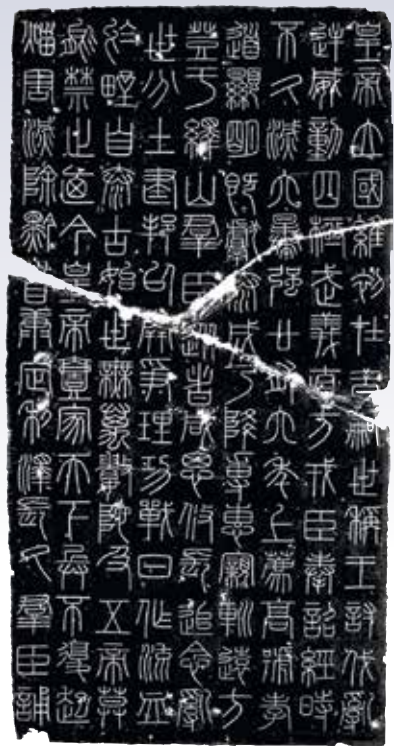 皇帝立國維初在昔嗣世稱王討伐亂
逆威動四極武義直方戎臣奉詔經時
不久滅六暴強廿有六年上薦高號孝
道顯明既獻泰成乃降尃惠親巡遠方
登于繹山群臣從者咸思攸長追念亂
世分土建邦以開爭理功戰日作流血
於野自泰古始世無萬數陀及五帝莫
能禁止迺今皇帝壹家天下兵不復起
烖害滅除黔首康定利澤長久群臣誦